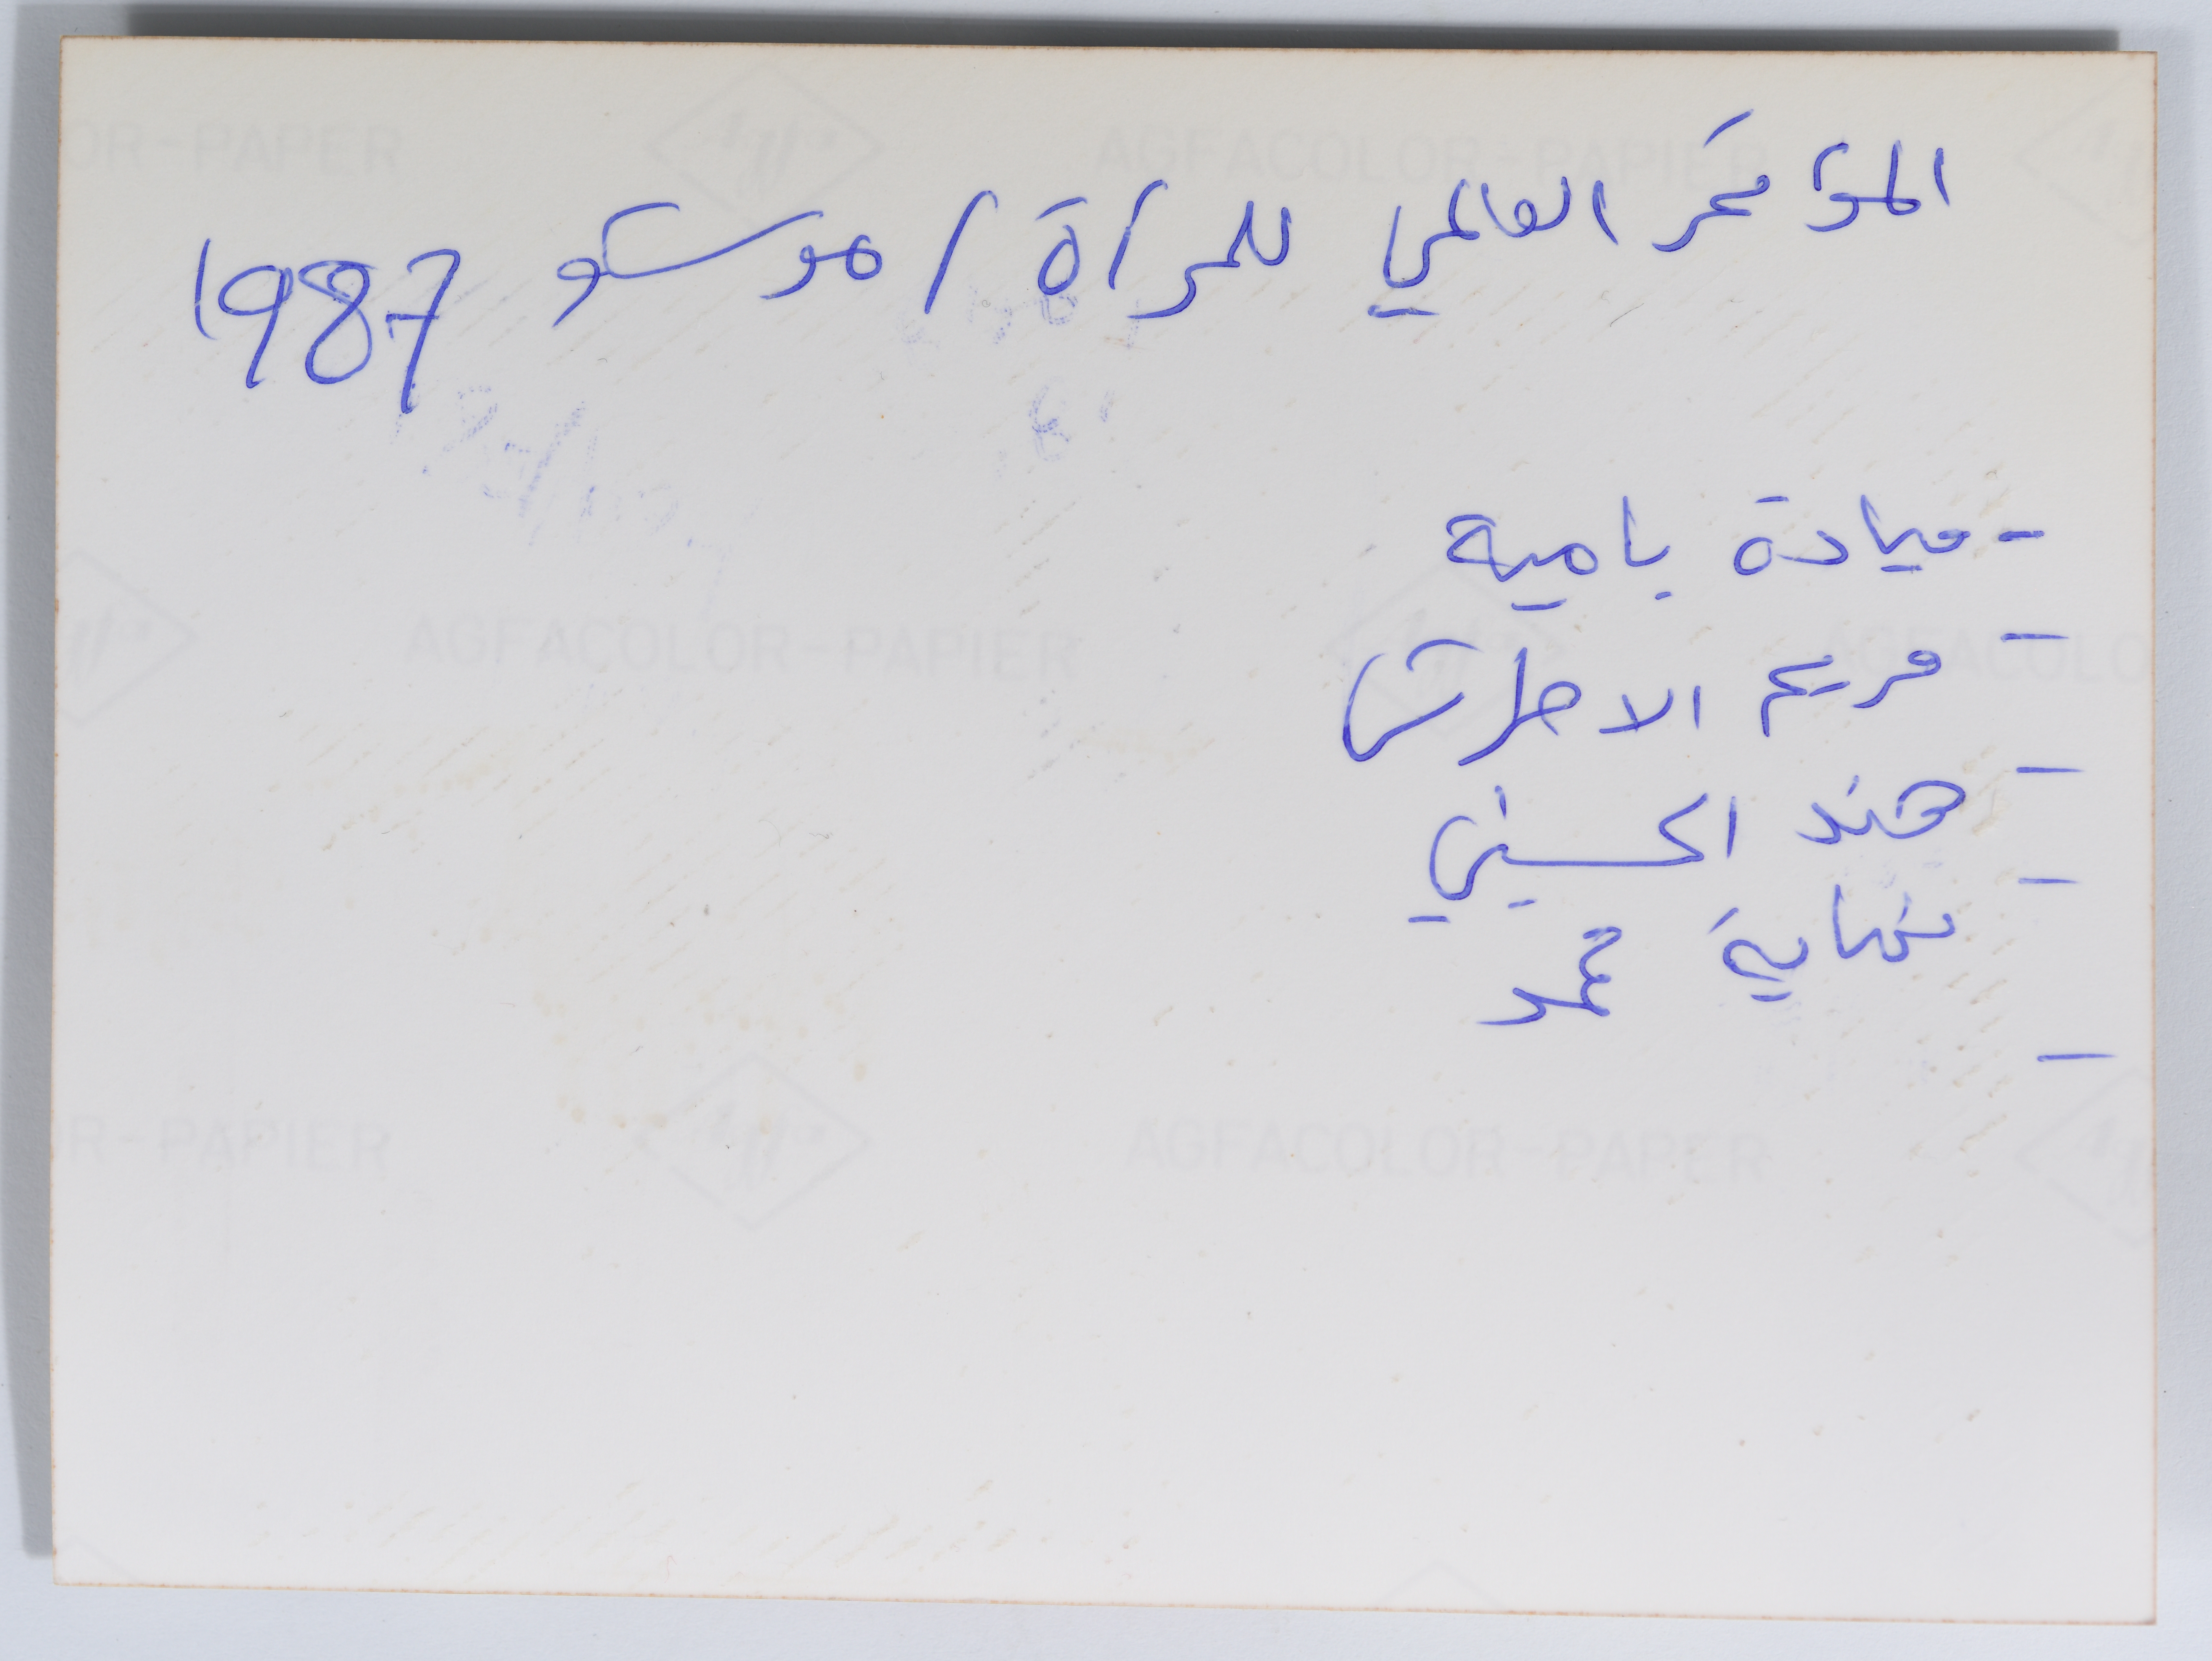 المؤتمر العالمي للمرأة / موسكو 1987
- ميادة بامية
- مريم الاطرش
- هند الحسيني
- نهاية محمد
-
OR-PAPER Agfa AGFACOLOR-PAPIER
Agfa AGFACOLOR-PAPIER Agfa AGFACOLO
OR-PAPIER Agfa AGFACOLOR-PAPER